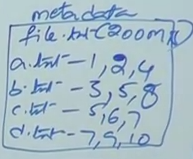 metadata
file.txt (200mb)
a.txt - 1, 2, 4
b.txt - 3, 5, 8
c.txt - 5, 6, 7
d.txt - 7, 9, 10